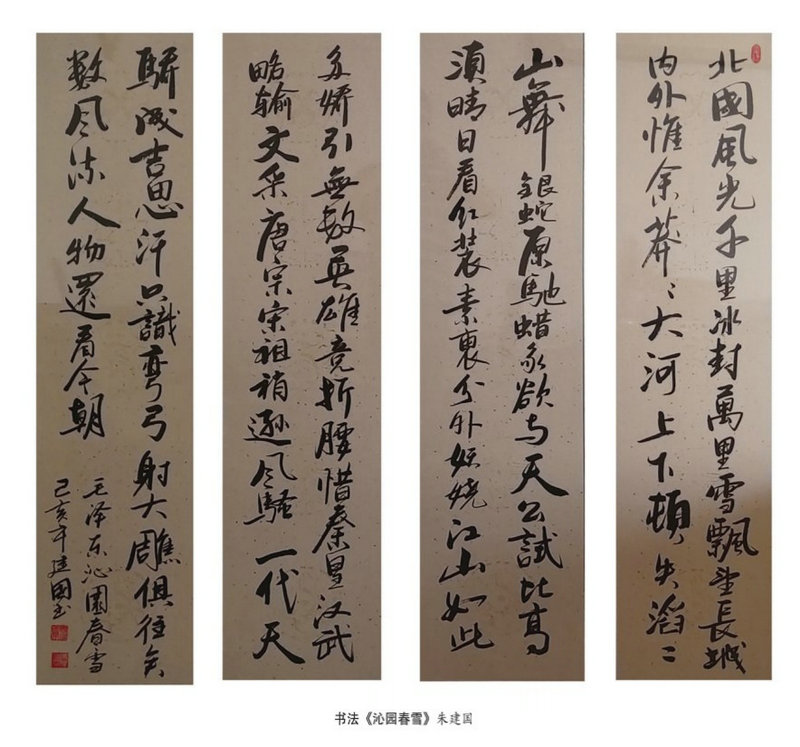 北國風光千里冰封萬里雪飄望長城
内外惟余莽〻大河上下頓失滔〻
山舞銀蛇原馳蜡象欲与天公試比高
湏晴日看红装素裹分外妖娆江山如此
多娇引無数英雄竞折腰惜秦皇汉武
略输文采唐宗宋祖稍逊风騷一代天
骄成吉思汗只識弯弓射大雕俱往矣
数风流人物還看今朝
毛泽东沁園春雪
己亥年建國书
书法《沁园春雪》朱建国